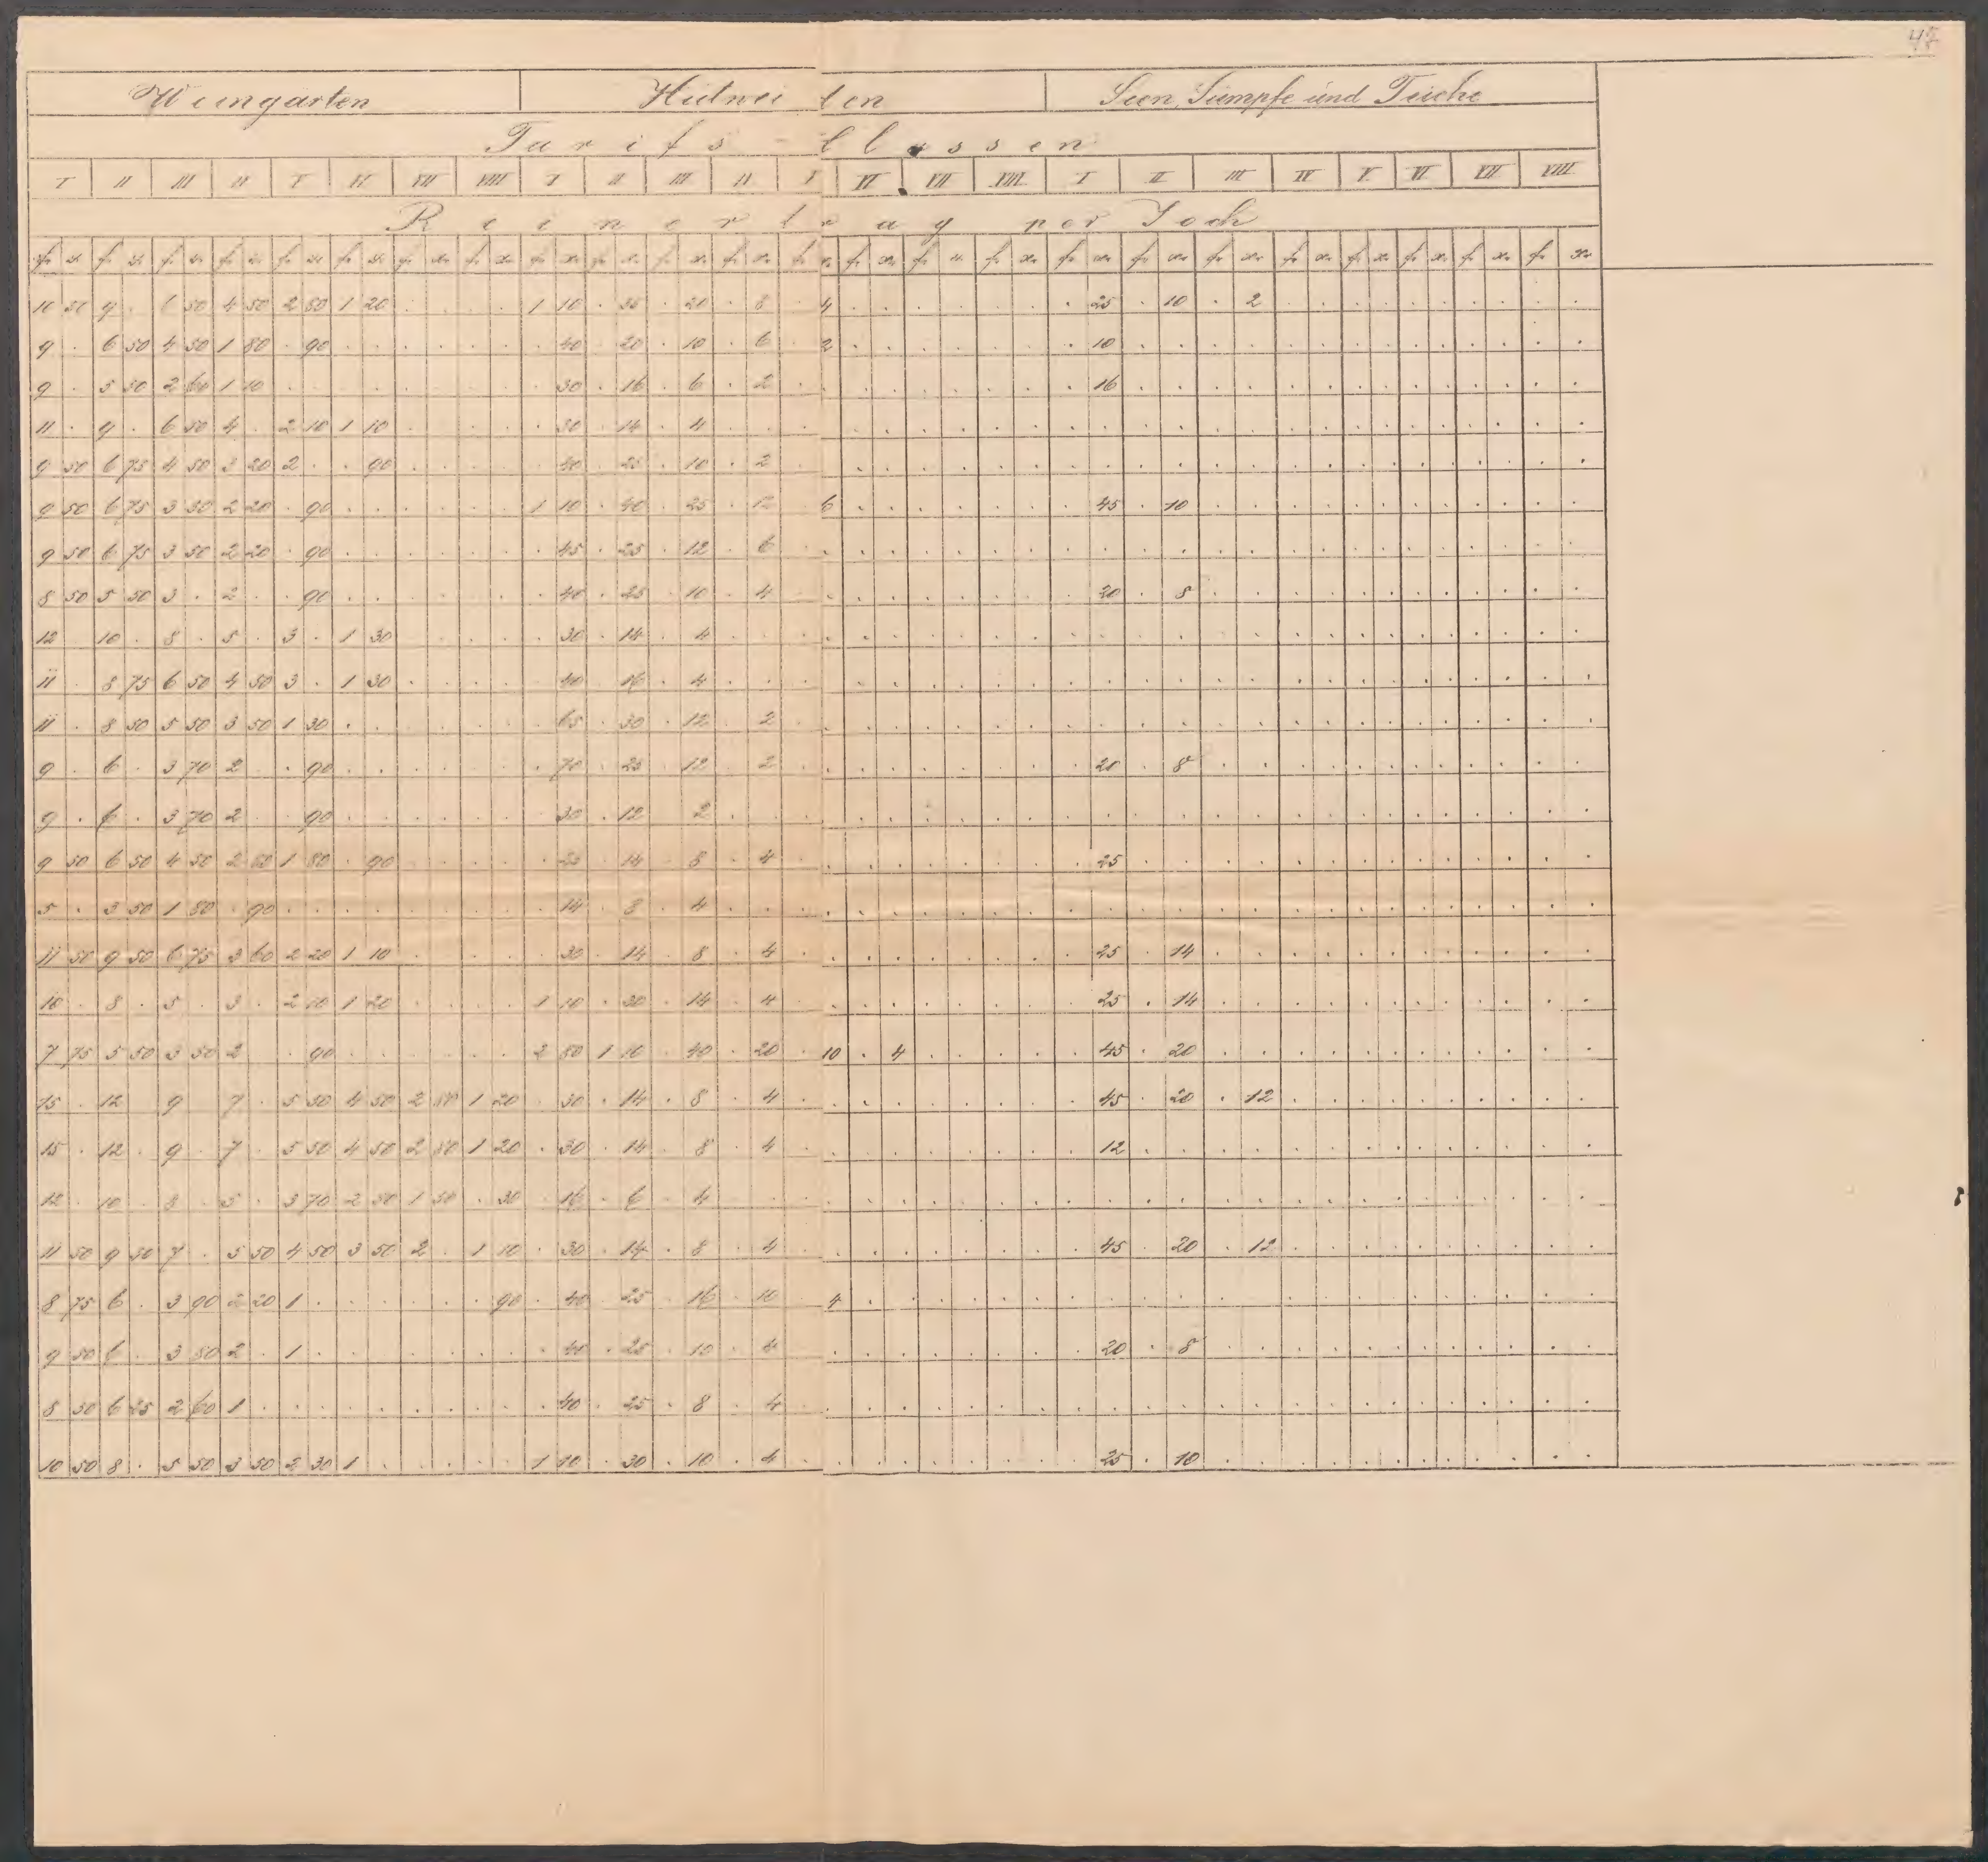 47
Weingärten Hutwei ten Seen, Sümpfe und Teiche
Tarifs - Classen
I II III IV V VI VII VIII I II III IV V VI VII VIII I II III IV V VI VII VIII
Reinertrag per Joch
fr xr fr xr fr xr fr xr fr xr fr xr fr xr fr xr fr xr fr xr fr xr fr xr fr xr fr xr fr xr fr xr fr xr fr xr fr xr fr xr fr xr fr xr fr xr fr xr
10 50 9 . 6 50 4 50 2 80 1 20 . . . . 1 10 . 35 . 20 . 8 . 4 . . . . . . . 25 . 10 . 2 . . . . . . . . . .
9 . 6 50 4 50 1 80 . 90 . . . . . . . 40 . 20 . 10 . 6 . 2 . . . . . . . 10 . . . . . . . . . . . . . .
9 . 5 50 2 60 1 10 . . . . . . . . . 30 . 16 . 6 . 2 . . . . . . . . . 16 . . . . . . . . . . . . . .
11 . 9 . 6 50 4 . 2 10 1 10 . . . . . 30 . 14 . 4 . . . . . . . . . . . . . . . . . . . . . . . . . .
9 50 6 75 4 50 3 20 2 . . 90 . . . . . 40 . 25 . 10 . 2 . . . . . . . . . . . . . . . . . . . . . . . .
9 50 6 75 3 50 2 20 . 90 . . . . . . 1 10 . 40 . 25 . 12 . 6 . . . . . . . 45 . 10 . . . . . . . . . . . .
9 50 6 75 3 50 2 20 . 90 . . . . . . . 45 . 25 . 12 . 6 . . . . . . . . . . . . . . . . . . . . . . . .
8 50 5 50 3 . 2 . . 90 . . . . . . . 40 . 25 . 10 . 4 . . . . . . . . . 20 . 8 . . . . . . . . . . . .
12 . 10 . 8 . 5 . 3 . 1 30 . . . . . 30 . 14 . 4 . . . . . . . . . . . . . . . . . . . . . . . . . .
11 . 8 75 6 50 4 50 3 . 1 30 . . . . . 40 . 16 . 4 . . . . . . . . . . . . . . . . . . . . . . . . . .
11 . 8 50 5 50 3 50 1 30 . . . . . . . 65 . 30 . 12 . 2 . . . . . . . . . . . . . . . . . . . . . . . .
9 . 6 . 3 70 2 . . 90 . . . . . . . 70 . 25 . 12 . 2 . . . . . . . . . 20 . 8 . . . . . . . . . . . .
9 . 6 . 3 70 2 . . 90 . . . . . . . 30 . 12 . 2 . . . . . . . . . . . . . . . . . . . . . . . . . .
9 50 6 50 4 50 2 80 1 80 . 90 . . . . . 25 . 14 . 8 . 4 . . . . . . . . . 25 . . . . . . . . . . . . . .
5 . 3 50 1 80 . 90 . . . . . . . . . 14 . 8 . 4 . . . . . . . . . . . . . . . . . . . . . . . . . .
11 50 9 50 6 75 3 60 2 20 1 10 . . . . . 30 . 14 . 8 . 4 . . . . . . . . . 25 . 14 . . . . . . . . . . . .
10 . 8 . 5 . 3 . 2 10 1 20 . . . . 1 10 . 30 . 14 . 4 . . . . . . . . . 25 . 14 . . . . . . . . . . . .
7 75 5 50 3 50 2 . . 90 . . . . . . 2 80 1 10 . 40 . 20 . 10 . 4 . . . . . 45 . 20 . . . . . . . . . . . .
15 . 12 . 9 . 7 . 5 50 4 50 2 80 1 20 . 30 . 14 . 8 . 4 . . . . . . . . . 45 . 20 . 12 . . . . . . . . . .
15 . 12 . 9 . 7 . 5 50 4 50 2 80 1 20 . 30 . 14 . 8 . 4 . . . . . . . . . 12 . . . . . . . . . . . . . .
12 . 10 . 8 . 5 . 3 70 2 50 1 50 . 30 . 16 . 6 . 4 . . . . . . . . . . . . . . . . . . . . . . . . . .
11 50 9 50 7 . 5 50 4 50 3 50 2 . 1 10 . 30 . 14 . 8 . 4 . . . . . . . . . 45 . 20 . 12 . . . . . . . . . .
8 75 6 . 3 90 2 20 1 . . . . . . 90 . 40 . 25 . 16 . 10 . 4 . . . . . . . . . . . . . . . . . . . . . .
9 50 6 . 3 50 2 . 1 . . . . . . . . 40 . 25 . 10 . 4 . . . . . . . . . 20 . 8 . . . . . . . . . . . .
8 50 6 25 2 60 1 . . . . . . . . . . 40 . 25 . 8 . 4 . . . . . . . . . . . . . . . . . . . . . . . .
10 50 8 . 5 50 3 50 2 30 1 . . . . . 1 10 . 30 . 10 . 4 . . . . . . . . . 25 . 10 . . . . . . . . . . . .